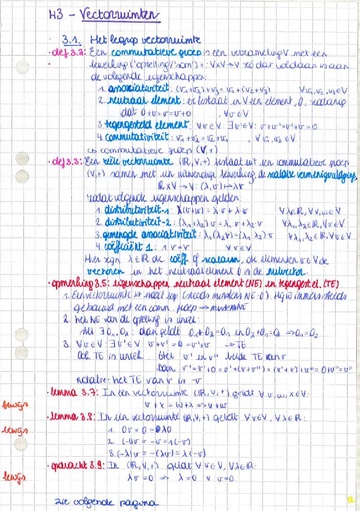 H3 - Vectorruimten
3.1. Het begrip vectorruimte
def 3.2: Een commutatieve groep is een verzameling V met een
bewerking ('optelling'/'som') + : V×V → V zó dat voldaan is aan
de volgende eigenschappen:
1. associativiteit: (v₁+v₂)+v₃ = v₁+(v₂+v₃) ∀v₁,v₂,v₃∈V
2. neutraal element: er bestaat in V een element, 0, zodanig
dat 0+v=v=v+0 , ∀v∈V
3. tegengesteld element: ∀v∈V ∃v'∈V: v+v'=v'+v=0
4. commutativiteit: v₁+v₂=v₂+v₁ , v₁,v₂∈V
commutatieve groep (V,+)
def 3.3: Een reële vectorruimte (ℝ,V,+) bestaat uit een commutatieve groep
(V,+) samen met een uitwendige bewerking de scalaire vermenigvuldiging
ℝ×V → V: (λ,v) ↦ λv
zodat volgende eigenschappen gelden:
1. distributiviteit-1: λ(v+w) = λv+λw ∀λ∈ℝ,∀v,w∈V
2. distributiviteit-2: (λ₁+λ₂)v = λ₁v+λ₂v ∀λ₁,λ₂∈ℝ,∀v∈V
3. gemengde associativiteit: λ₁(λ₂v)=(λ₁λ₂)v ∀λ₁,λ₂∈ℝ,∀v∈V
4. coëfficiënt 1: 1v=v ∀v∈V
Hier zijn λ∈ℝ de coëff of scalairen, de elementen v∈V de
vectoren en het neutraal element 0 is de nulvector.
opmerking 3.5: eigenschappen neutraal element (NE) en tegengest el. (TE)
1. Een vectorruimte is nooit leeg (steeds minstens NE: 0)
2. het NE van de optelling is uniek:
dan geldt 0₁+0₂=0₁ en 0₁+0₂=0₂ ⇒ 0₁=0₂
3. ∀v∈V ∃v'∈V: v+v'=0=v'+v → TE
TE is uniek. Stel v' en v'' beide TE van v
notatie: het TE van v is -v
lemma 3.7: In een vectorruimte (ℝ,V,+) geldt ∀v,w,x∈V
v+x=w+x ⇒ v=w
bewijs
lemma 3.8: In een vectorruimte (ℝ,V,+) geldt ∀v∈V, ∀λ∈ℝ:
bewijs
1. 0v=0=λ0
2. (-1)v=-v
3. (-λ)v=-(λv)=λ(-v)
opdracht 3.9: In (ℝ,V,+) geldt ∀v∈V, ∀λ∈ℝ:
bewijs
λv=0 ⇒ λ=0 ∨ v=0
zie volgende pagina